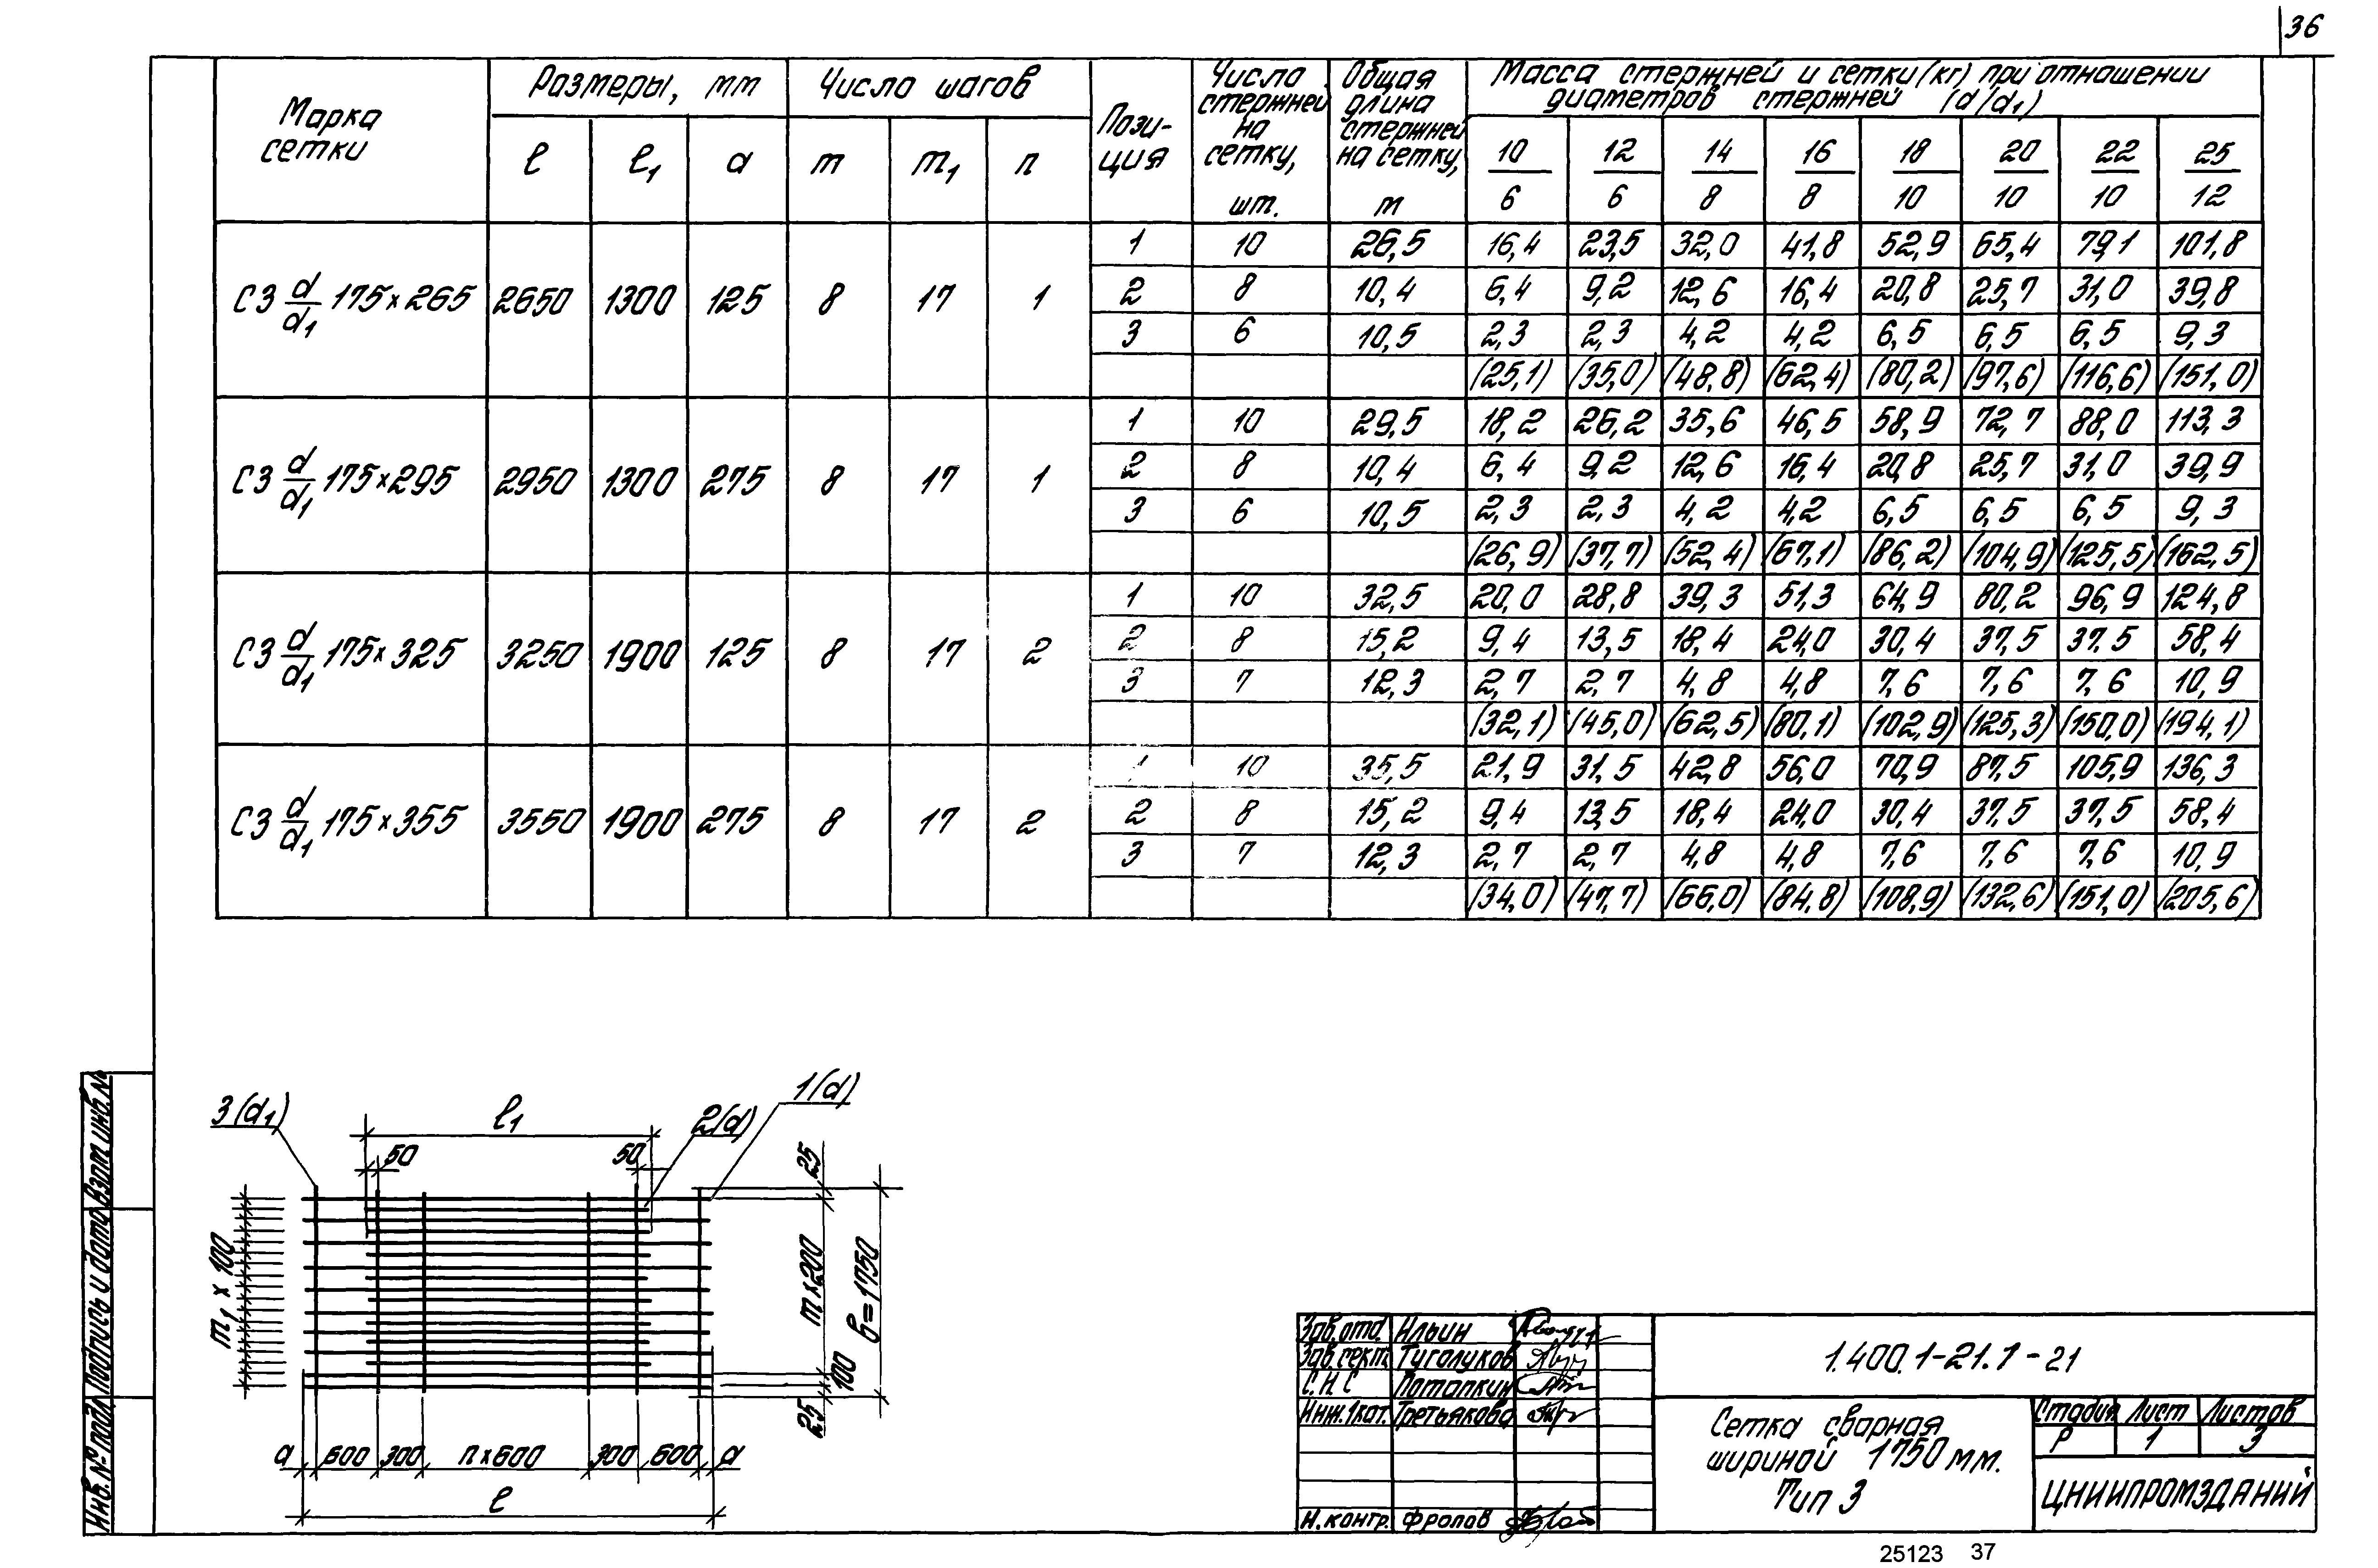 36
Марка сетки | Размеры, мм | Число шагов | Пози-ция | Число стержней на сетку, шт. | Общая длина стержней на сетку, м | Масса стержней и сетки (кг) при отношении диаметров стержней (d/d1)
ℓ | ℓ1 | a | m | m1 | n | 10/6 | 12/6 | 14/8 | 16/8 | 18/10 | 20/10 | 22/10 | 25/12
С3 d/d1 175×265 | 2650 | 1300 | 125 | 8 | 17 | 1
1 | 10 | 26,5 | 16,4 | 23,5 | 32,0 | 41,8 | 52,9 | 65,4 | 79,1 | 101,8
2 | 8 | 10,4 | 6,4 | 9,2 | 12,6 | 16,4 | 20,8 | 25,7 | 31,0 | 39,8
3 | 6 | 10,5 | 2,3 | 2,3 | 4,2 | 4,2 | 6,5 | 6,5 | 6,5 | 9,3
(25,1) | (35,0) | (48,8) | (62,4) | (80,2) | (97,6) | (116,6) | (151,0)
С3 d/d1 175×295 | 2950 | 1300 | 275 | 8 | 17 | 1
1 | 10 | 29,5 | 18,2 | 26,2 | 35,6 | 46,5 | 58,9 | 72,7 | 88,0 | 113,3
2 | 8 | 10,4 | 6,4 | 9,2 | 12,6 | 16,4 | 20,8 | 25,7 | 31,0 | 39,9
3 | 6 | 10,5 | 2,3 | 2,3 | 4,2 | 4,2 | 6,5 | 6,5 | 6,5 | 9,3
(26,9) | (37,7) | (52,4) | (67,1) | (86,2) | (104,9) | (125,5) | (162,5)
С3 d/d1 175×325 | 3250 | 1900 | 125 | 8 | 17 | 2
1 | 10 | 32,5 | 20,0 | 28,8 | 39,3 | 51,3 | 64,9 | 80,2 | 96,9 | 124,8
2 | 8 | 15,2 | 9,4 | 13,5 | 18,4 | 24,0 | 30,4 | 37,5 | 37,5 | 58,4
3 | 7 | 12,3 | 2,7 | 2,7 | 4,8 | 4,8 | 7,6 | 7,6 | 7,6 | 10,9
(32,1) | (45,0) | (62,5) | (80,1) | (102,9) | (125,3) | (150,0) | (194,1)
С3 d/d1 175×355 | 3550 | 1900 | 275 | 8 | 17 | 2
1 | 10 | 35,5 | 21,9 | 31,5 | 42,8 | 56,0 | 70,9 | 87,5 | 105,9 | 136,3
2 | 8 | 15,2 | 9,4 | 13,5 | 18,4 | 24,0 | 30,4 | 37,5 | 37,5 | 58,4
3 | 7 | 12,3 | 2,7 | 2,7 | 4,8 | 4,8 | 7,6 | 7,6 | 7,6 | 10,9
(34,0) | (47,7) | (66,0) | (84,8) | (108,9) | (132,6) | (151,0) | (205,6)
3(d1) ℓ1 2(d) 1(d)
50 50 25
m1 × 100
m×200
b=1750
100
25
a 600 300 n×600 300 600 a
ℓ
Взам инв. №
Подпись и дата
Инв. № подл
Зав. отд. Ильин
Зав. сект. Туголуков
С.Н.С Потапкин
Инж. 1 кат. Третьякова
Н. контр. Фролов
1.400.1-21.1-21
Сетка сварная
шириной 1750 мм.
Тип 3
Стадия Лист Листов
Р 1 3
ЦНИИПРОМЗДАНИЙ
25123 37